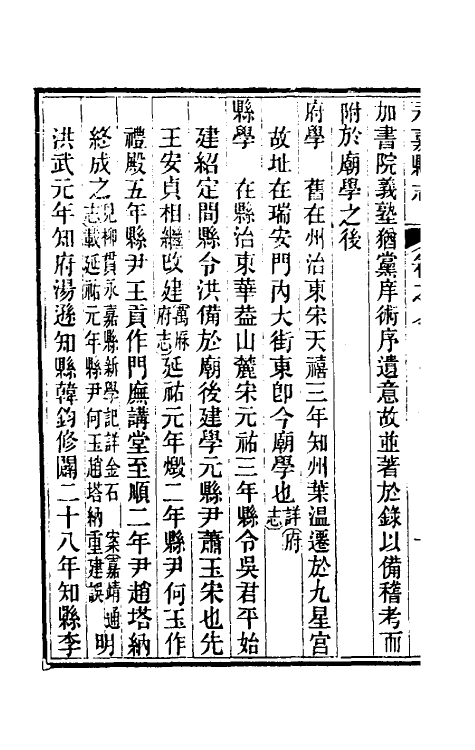 永嘉縣志
加書院義塾猶黨庠術序遺意故並著於錄以備稽考而
附於廟學之後
府學 舊在州治東宋天禧三年知州葉溫遷於九星宮
故址在瑞安門內大街東卽今廟學也詳府志
縣學 在縣治東華葢山麓宋元祐三年縣令吳君平始
建紹定間縣令洪備於廟後建學元縣尹蕭玉宋也先
王安貞相繼改建萬厯府志延祐元年燬二年縣尹何玉作
禮殿五年縣尹王貢作門廡講堂至順二年尹趙塔納
終成之見柳貫永嘉縣新學記詳金石 案嘉靖通志載延祐元年縣尹何玉趙塔納重建誤 明
洪武元年知府湯遜知縣韓鈞修闢二十八年知縣李